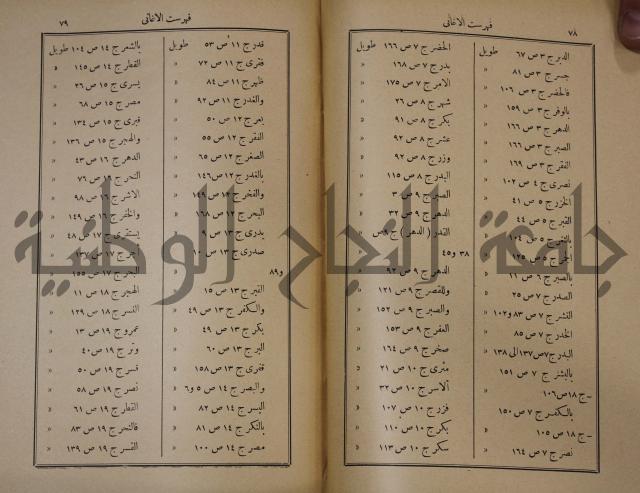 فهرست الاغانى
٧٨
الدبر ج ٣ ص ٦٧ طويل
جسر ج ٣ ص ٨١ »
فالحضر ج ٣ ص ١٠٦ »
بالوفر ج ٣ ص ١٥٩ »
الدهر ج ٣ ص ١٦٦ »
الصبر ج ٣ ص ١٦٦ »
الفقر ج ٣ ص ١٦٩ »
نصرى ج ٤ ص ١٠٢ »
ج ٥ ص ٤١ »
القبر ج ٥ ص ٤٤ »
ج ٥ ص ١٠٤
ج ٥ ص ١٢٥
بالصبر ج ٦ ص ١١ »
الصدر ج ٧ ص ٢٥ »
ج ٧ ص ٨٣ و١٠٢
الخدر ج ٧ ص ٨٥ »
البدر ج ٧ ص ١٣٧ الى ١٣٨
ج ٧ ص ١٥١ »
ـ ج ١٨ ص ١٠٦ »
بالكفر ج ٧ ص ١٥٠
ـ ج ١٨ ص ١٠٥ »
نصر ج ٧ ص ١٦٤ »
الخضر ج ٧ ص ١٦٦ طويل
بدر ج ٧ ص ١٦٨ »
الامر ج ٧ ص ١٧٥ »
شهر ج ٨ ص ٢٦ »
بكر ج ٨ ص ٩١ »
عشر ج ٨ ص ٩٢ »
وزر ج ٨ ص ٩٢ »
البدر ج ٨ ص ١١٥ »
الصبر ج ٩ ص ٣ »
الدهر ج ٩ ص ٣٢ »
القدر ( الدهر ) ج ٩ ص
٣٨ و٤٥ »
الدهر ج ٩ ص ٩٢ »
وللقصر ج ٩ ص ١٢١ »
والصبر ج ٩ ص ١٥٢ »
العفر ج ٩ ص ١٥٣ »
صخر ج ٩ ص ١٦٤ »
ج ١٠ ص ٢١ »
ج ١٠ ص ٣٢ »
فزر ج ١٠ ص ١٠٧ »
بكر ج ١٠ ص ١١٠ »
سكر ج ١٠ ص ١١٣ »
فهرست الاغانى
٧٩
قدر ج ١١ ص ٥٣ طويل
فقرى ج ١١ ص ٧٢ »
ظهر ج ١١ ص ٨٤ »
والغدر ج ١١ ص ٩٢ »
ج ١٢ ص ٥٠ »
النقر ج ١٢ ص ٥٥ »
الصفر ج ١٢ ص ٦٥ »
بالغدر ج ١٢ ص ١٤٦ »
والفخر ج ١٢ ص ١٤٩ »
البحر ج ١٢ ص ١٦٨ »
بدرى ج ١٣ ص ٩ »
صدرى ج ١٣ ص ١٠
و٨٩ »
القبر ج ١٣ ص ١٥ »
والكفر ج ١٣ ص ٤٩ »
بكر ج ١٣ ص ٤٩ »
البر ج ١٣ ص ٦٠ »
فقرى ج ١٣ ص ١٥٨ »
والبصر ج ١٤ ص ٥ و٦ »
اليسر ج ١٤ ص ٨٢ »
بالنكر ج ١٤ ص ٨١ »
مصر ج ١٤ ص ١٠٠ »
بالشعر ج ١٤ ص ١٠٤ طويل
القطر ج ١٤ ص ١٤٥ »
يسرى ج ١٥ ص ٢٦ »
مصر ج ١٥ ص ٦٨ »
قبرى ج ١٥ ص ١٣٤ »
والهجر ج ١٥ ص ١٣٦ »
الدهر ج ١٦ ص ٤٣ »
النحر ج ١٦ ص ٧٦ »
ج ١٦ ص ٩٨ »
ج ١٦ ص ١٤٩ »
ج ١٧ ص ٤٨ »
ج ١٧ ص
ج ١٧ ص ١٥٥
الهجر ج ١٨ ص ١١ »
ج ١٨ ص ١٢٩ »
عمرو ج ١٩ ص ١٣ »
وتر ج ١٩ ص ٤٠ »
قسر ج ١٩ ص ٥٠ »
نصر ج ١٩ ص ٥٨ »
القطر ج ١٩ ص ٦١ »
فالنحر ج ١٩ ص ٨٣ »
ج ١٩ ص ١٣٩ »
جامعة النجاح الوطنية